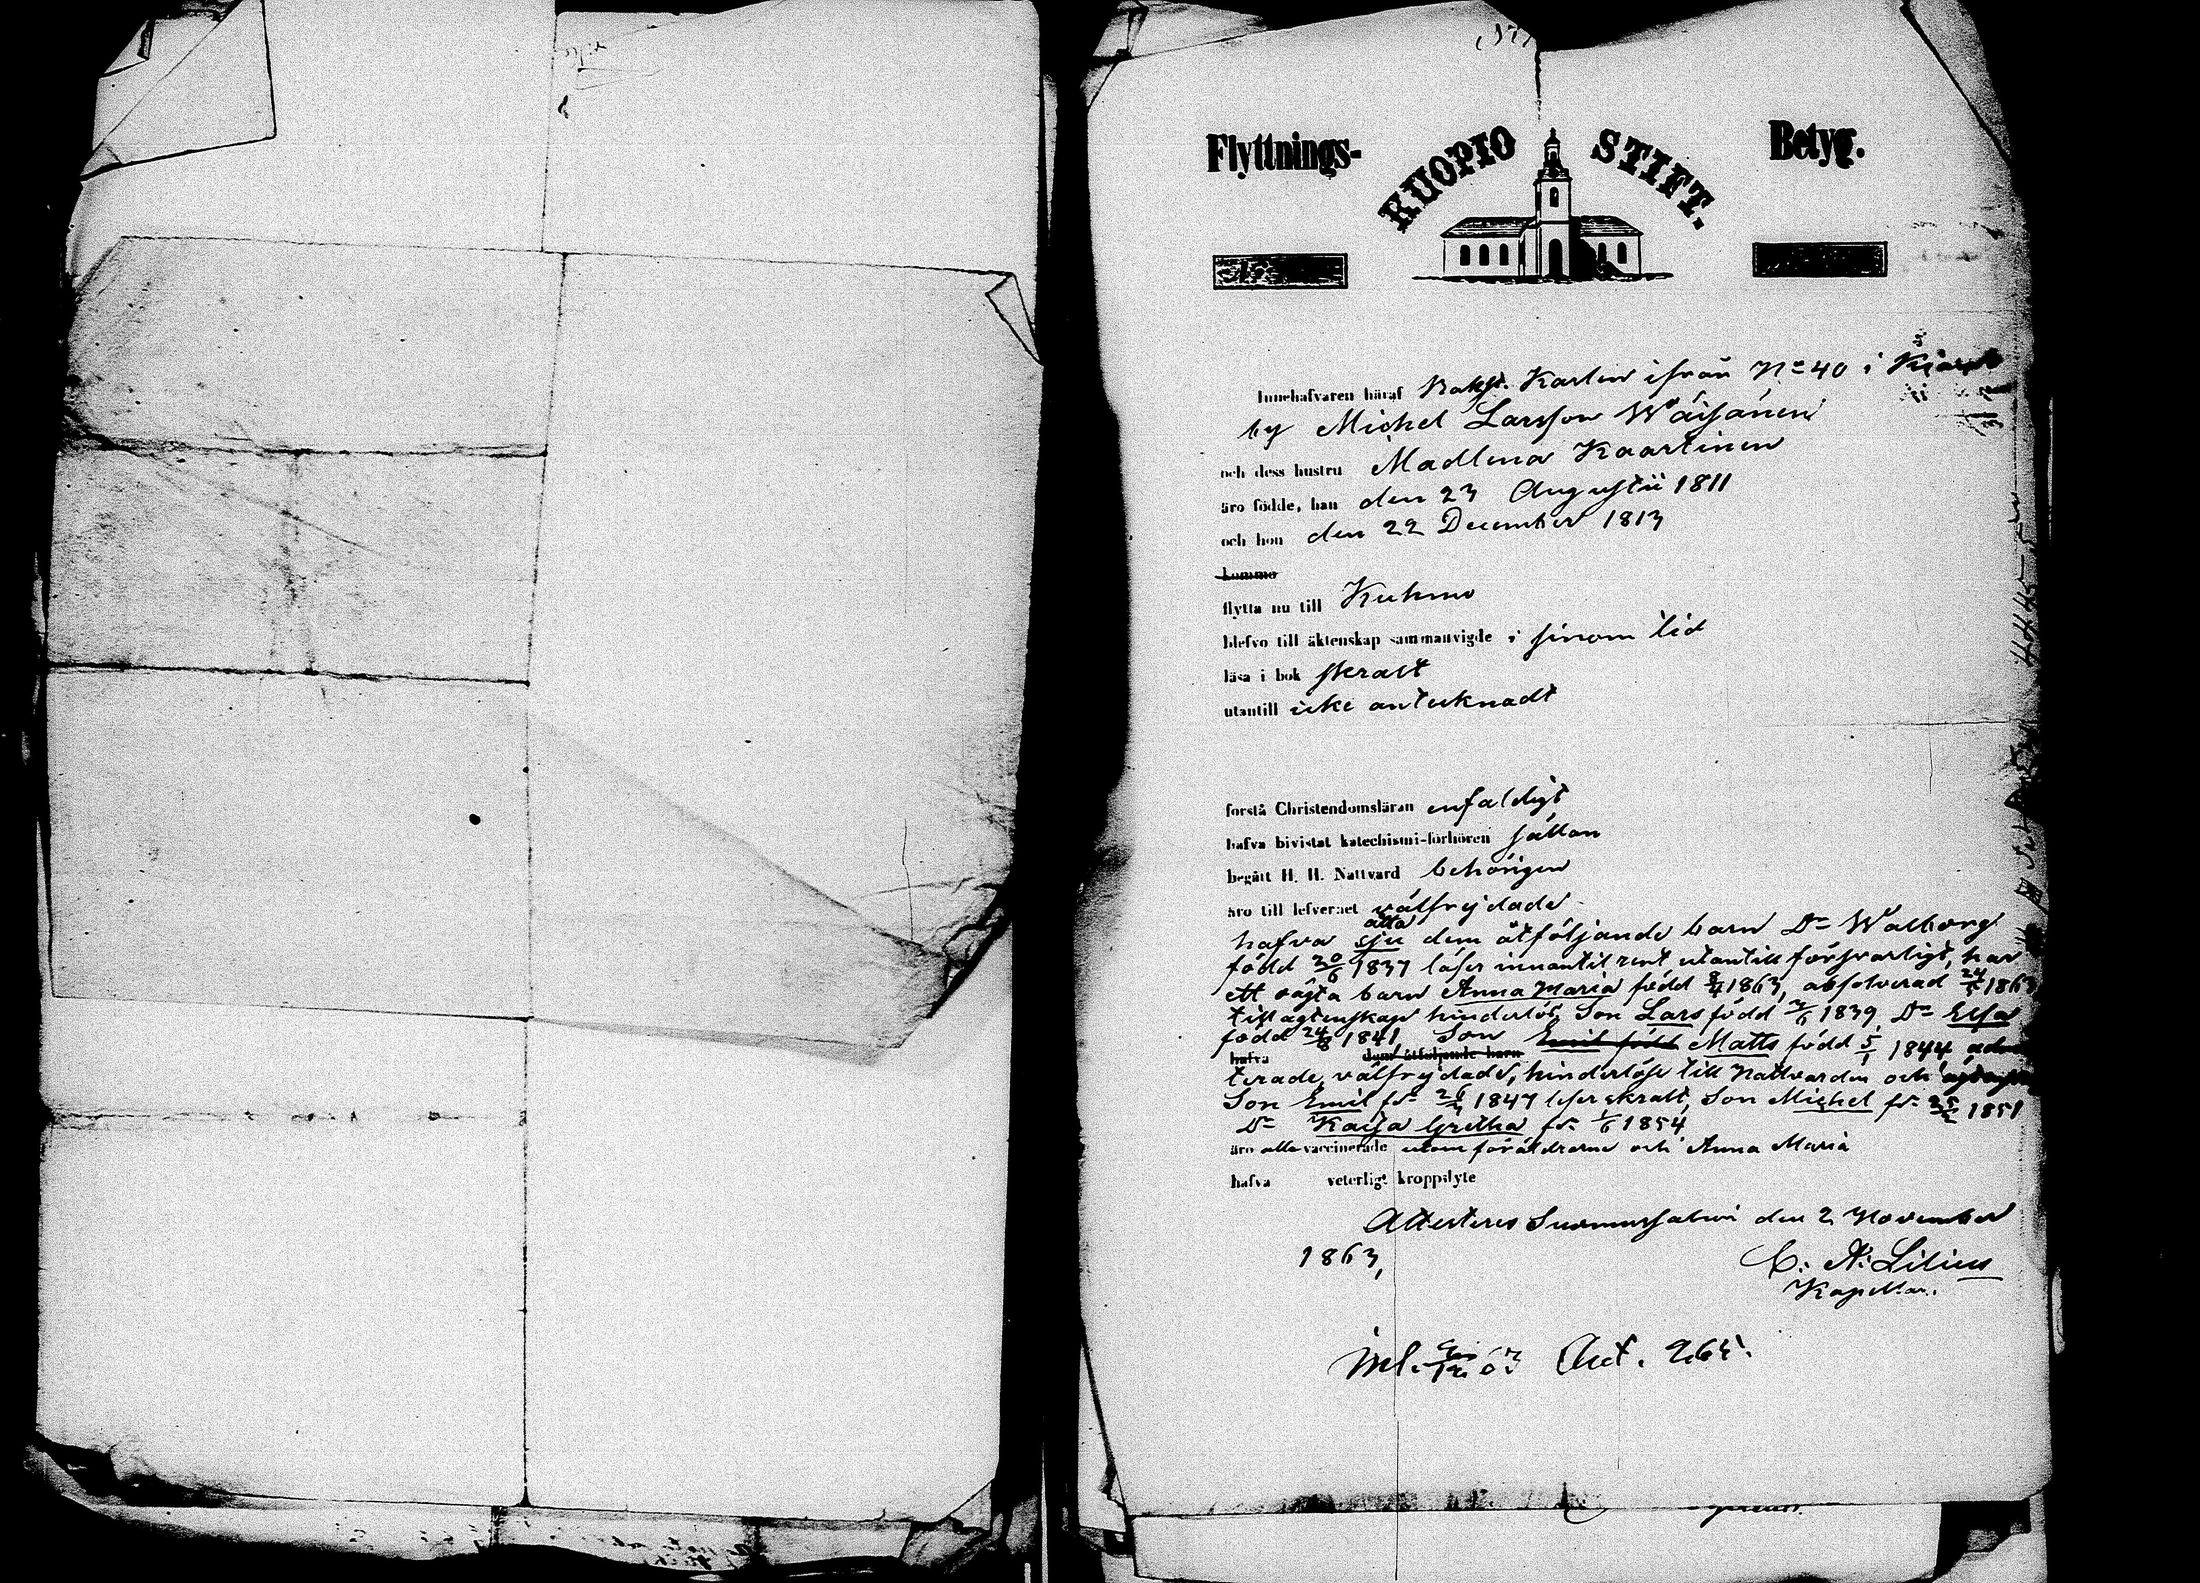 Flyttnings- KUOPIO STIFT. Betyg.
Innehafvaren häraf Karlen ifrån No 40 i
by Michel Larsson Wäisänen
och dess hustru Madlena Kaartinen
äro födde, han den 23 Augustii 1811
och hon den 22 December 1813
komma
flytta nu till Kuhmo
blefvo till äktenskap sammanvigde i sinom tid
läsa i bok skralt
utantill icke antecknadt
förstå Christendomsläran enfaldigt
hafva bivistat katechismi-förhören sällan
begått H. H. Nattvard behörigen
äro till lefvernet välfrejdade
åtta
hafva sju dem åtföljande barn Dr Walborg
född 20/6 1837 läser innantil rent utantill försvarligt, har
ett oägta barn Anna Maria född 8/4 1863, absolverad 24/5 1863
till ägtenskap hinderlös, Son Lars född 3/6 1839 Dr Elsa
född 24/8 1841, Son Emil född Matts född 5/1 1844
hafva dem åtföljande barn
terade, välfrejdade, hinderlöse till Nattvarden och
Son Emil fr 1847 läser skralt, Son Michel fr 1851
Dr Kaisa Gretha fr. 1/6 1854
äro alla vaccinerade utom föräldrarne och Anna Maria
hafva veterligt kroppslyte
Attesteres Suomussalmi den 2 November
1863,
C. A. Lilius
Kapellan.
Inl. 63 Act. 265.